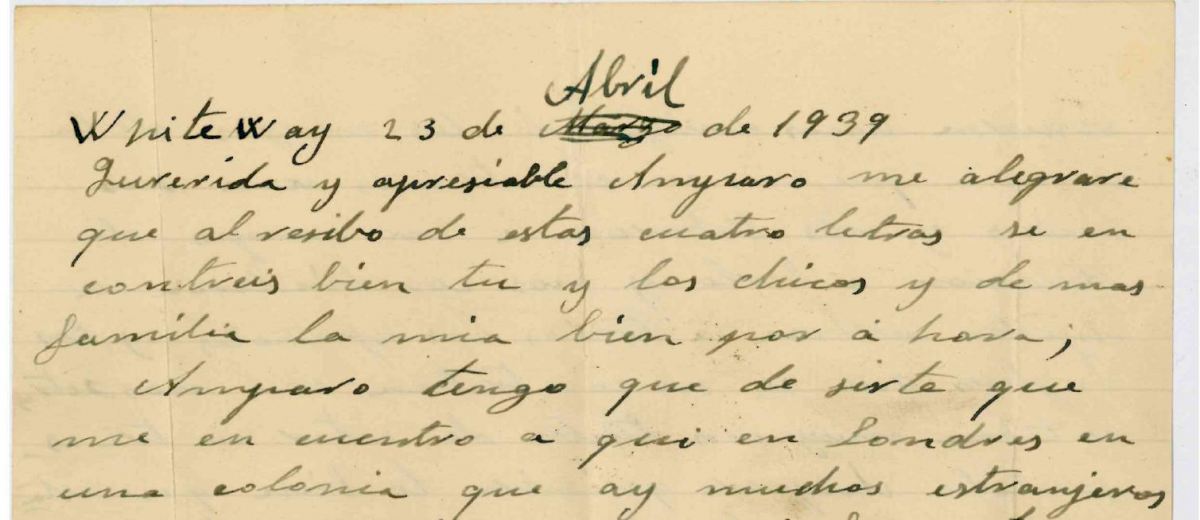 Abril
WhiteWay 23 de Marzo de 1939
Qurerida y apresiable Amparo me alegrare
que al resibo de estas cuatro letras se en
contreis bien tu y los chicos y de mas
familia la mia bien por a hora;
Amparo tengo que de sirte que
me en cuentro a qui en Londres en
una colonia que ay muchos estranjeros